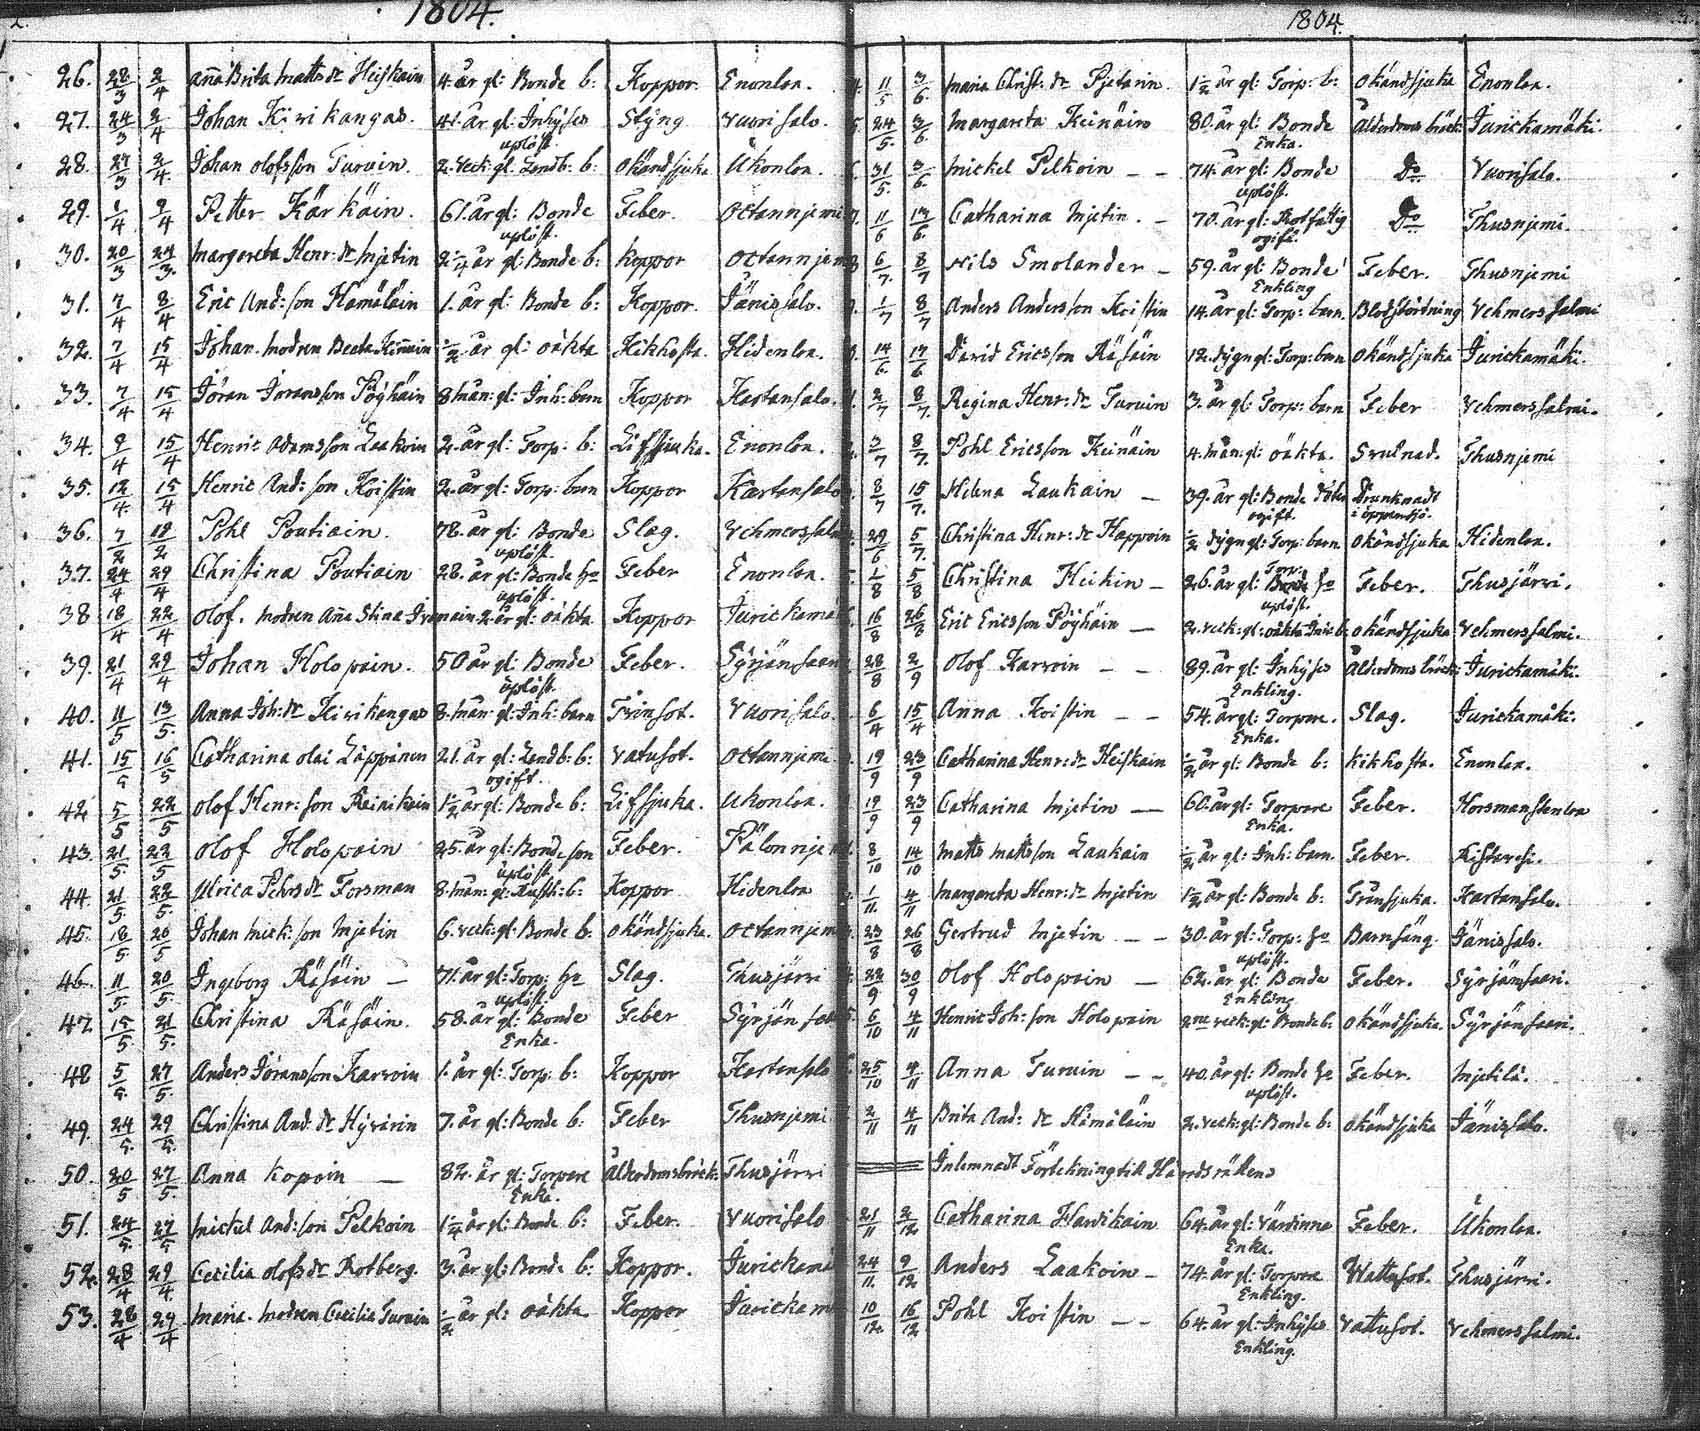 2.
1804.
26. 28/3 2/4 Aña Brita Matts dr Heiskain 4. år gl: Bonde b: Koppor. Enonloa.
27. 24/3 2/4 Johan Kirikangas. 41. år gl: Inhyses Styng Vuorisalo.
uplöst.
28. 27/3 2/4 Johan Olofsson Turuin. 2. veck: gl. Landb: b: Okändsjuka Ukonloa.
29. 1/4 2/4 Petter Kärkäin. 61. år gl: Bonde Feber. Octannjemi
uplöst.
30. 20/3 24/3. Margareta Henr: dr Mjetin 2 1/4 år gl: Bonde b: Koppor Octannjem
31. 7/4 8/4 Eric And: son Hämäläin 1. år gl: Bonde b: Koppor. Jänissalo.
32. 7/4 15/4 Johan. modren Beata Kiñuin 1/2 år gl: oäkta Kikhosta. Hidenloa.
33. 7/4 15/4 Jöran Joransson Pöyhäin 8 mån: gl: Inh: barn Koppor Kartansalo.
34. 9/4 15/4 Henric Adamsson Laakoin 2. år gl: Torp: b: Lifsjuka. Enonloa.
35. 12/4 15/4 Henric And: son Koistin 2. år gl: Torp: barn Koppor Kartansalo
36. 7/2 12/2 Pohl Poutiain. 78. år gl: Bonde Slag. Vehmerssalm
uplöst.
37. 24/4 29/4 Christina Poutiain 28. år gl: Bonde hu Feber Enonloa.
uplöst.
38 18/4 22/4 Olof. modren Aña Stina 2 år gl: oäkta Koppor Jurickamä
39. 21/4 29/4 Johan Holopain. 50 år gl: Bonde Feber. Syrjänsaari
uplöst.
40. 11/5 13/5. Anna Joh: dr Kirikangas 8. mån: gl: Inh: barn Trånsot. Vuorisalo.
41. 15/5 16/5 Catharina Olai Läppänen 21. år gl: Landb: b: Vatusot. Octannjemi
ogift.
42 5/5 22/5 Olof Henr: son Reinikain 1 1/2 år gl: Bonde b: Lifsjuka. Ukonloa.
43. 21/5. 22/5 Olof Holopain 25. år gl: Bonde son Feber. Pälonnjem
uplöst.
44. 21/5. 22/5. Ulrica Pehrs dr Forsman 8. mån: gl: Rusth: b: Koppor Hidenloa
45. 18/5. 20/5 Johan Mick: son Mjetin 6. veck: gl: Bonde b. Okändsjuka. Octannjem
46. 11/5. 20/5. Ingeborg Räsäin — 71. år gl: Torp: hu Slag. Thusjärvi
uplöst.
47. 15/5. 21/5. Christina Räsäin. 58. år gl: Bonde Feber Syrjänsaa
Enka.
48 5/5. 27/5. Anders Jöransson Karvoin 1. år gl: Torp: b: Koppor Kartansalo
49. 24/5. 29/5. Christina And: dr Hyvärin 7. år gl: Bonde b: Feber Thusnjemi
50. 20/5 27/5. Anna Kopoin — 82. år gl: Torpare Ålderdomsbräck: Thusjärvi
Enka.
51. 24/5. 27/5 Mickel And: son Pelkoin 1 1/4 år gl: Bonde b: Feber. Vuorisalo
52. 28/4 29/4 Cecilia Olofs dr Rotberg. 3. år gl: Bonde b: Koppor. Jurickamä
53. 28/4 29/4 Maria. modren Cecilia Turuin 1/2 år gl: oäkta Koppor Jurickam
1804.
3.
11/5 3/6. Maria Christ: dr Pjetarin. 1 1/2 år gl: Torp: b: Okändsjuka Enonloa.
24/5. 3/6. Margareta Keinäin 80. år gl: Bonde Ålderdoms bräck: Jurickamäki.
Enka.
31/5. 3/6. Mickel Pelkoin — — 74. år gl: Bonde Do Vuorisalo.
uplöst.
11/6 13/6. Catharina Mjetin. — 70. år gl: Rotfattig Do Thusnjemi.
ogift.
6/7. 8/7 Nils Smolander — 59. år gl: Bonde Feber. Thusnjemi
Enkling
1/7 8/7 Anders Andersson Koistin 14. år gl: Torp: barn. Blodstörtning Vehmerssalmi
14/6. 17/6 David Ericsson Räsäin 12. dygn gl: Torp: barn Okändsjuka Jurickamäki.
2/7 8/7. Regina Henr: dr Turuin 3. år gl: Torp: barn Feber Vehmerssalmi.
3/7 8/7. Pohl Ericsson Keinäin 4. mån: gl: oäkta. Svulnad. Thusnjemi
8/7 15/7. Helena Laukain — 39. år gl: Bonde doter Drunknadt
ogift. i öppen sjö.
29/6 5/7. Christina Henr: dr Happoin 1/2 dygn gl: Torp: barn. Okändsjuka Hidenloa.
1/8 5/8 Christina Heikin — 26. år gl: Torp: hu Feber. Thusjärvi.
uplöst.
16/8 26/8 Eric Ericsson Pöyhäin — 2. veck: gl: oäkta Inh: b. Okändsjuka Vehmerssalmi.
28/8 2/9 Olof Karvoin — — 89. år gl: Inhyses Ålderdoms bräck: Jurickamäki.
Enkling.
6/4 15/4 Anna Koistin — — 54. år gl: Torpare. Slag. Jurickamäki.
Enka.
19/9 23/9 Catharina Henr: dr Heiskain 1/2 år gl: Bonde b: Kikhosta. Enonloa.
19/9 23/9 Catharina Mjetin — 60. år gl: Torpare Feber. Horsmanstenloa
Enka.
8/10 14/10 Matts Mattsson Laukain 1/2 år gl: Inh: barn. Feber.
1/11. 4/11 Margareta Henr: dr Mjetin 1 1/2 år gl: Bonde b: Trånsjuka. Kartansalo.
23/8 26/8 Gertrud Mjetin — — 30. år gl: Torp: hu Barnsäng. Jänissalo.
uplöst.
22/9 30/9 Olof Holopain — 62. år gl: Bonde Feber. Syrjänsaari.
Enkling
6/10 4/11 Henric Joh: son Holopain 2ne veck: gl: Bonde b: Okändsjuka. Syrjänsaari.
25/10 4/11 Anna Turuin — — 40. år gl: Bonde hu Feber. Mjetilä.
uplöst.
2/11 4/11 Brita And: dr Hämäläin 2. veck: gl: Bonde b: Okändsjuka Jänissalo.
Inlemnadt Förtekning till Häradsrätten
21/11 2/12. Catharina Havikain 64. år gl: Värdinna Feber. Ukonloa.
Enka.
24/11. 9/12 Anders Laakoin — 74. år gl: Torpare Wattusot. Thusjärvi.
Enkling.
10/12. 16/12 Pohl Koistin — — 64. år gl: Inhyses Vattusot. Vehmerssalmi.
Enkling.